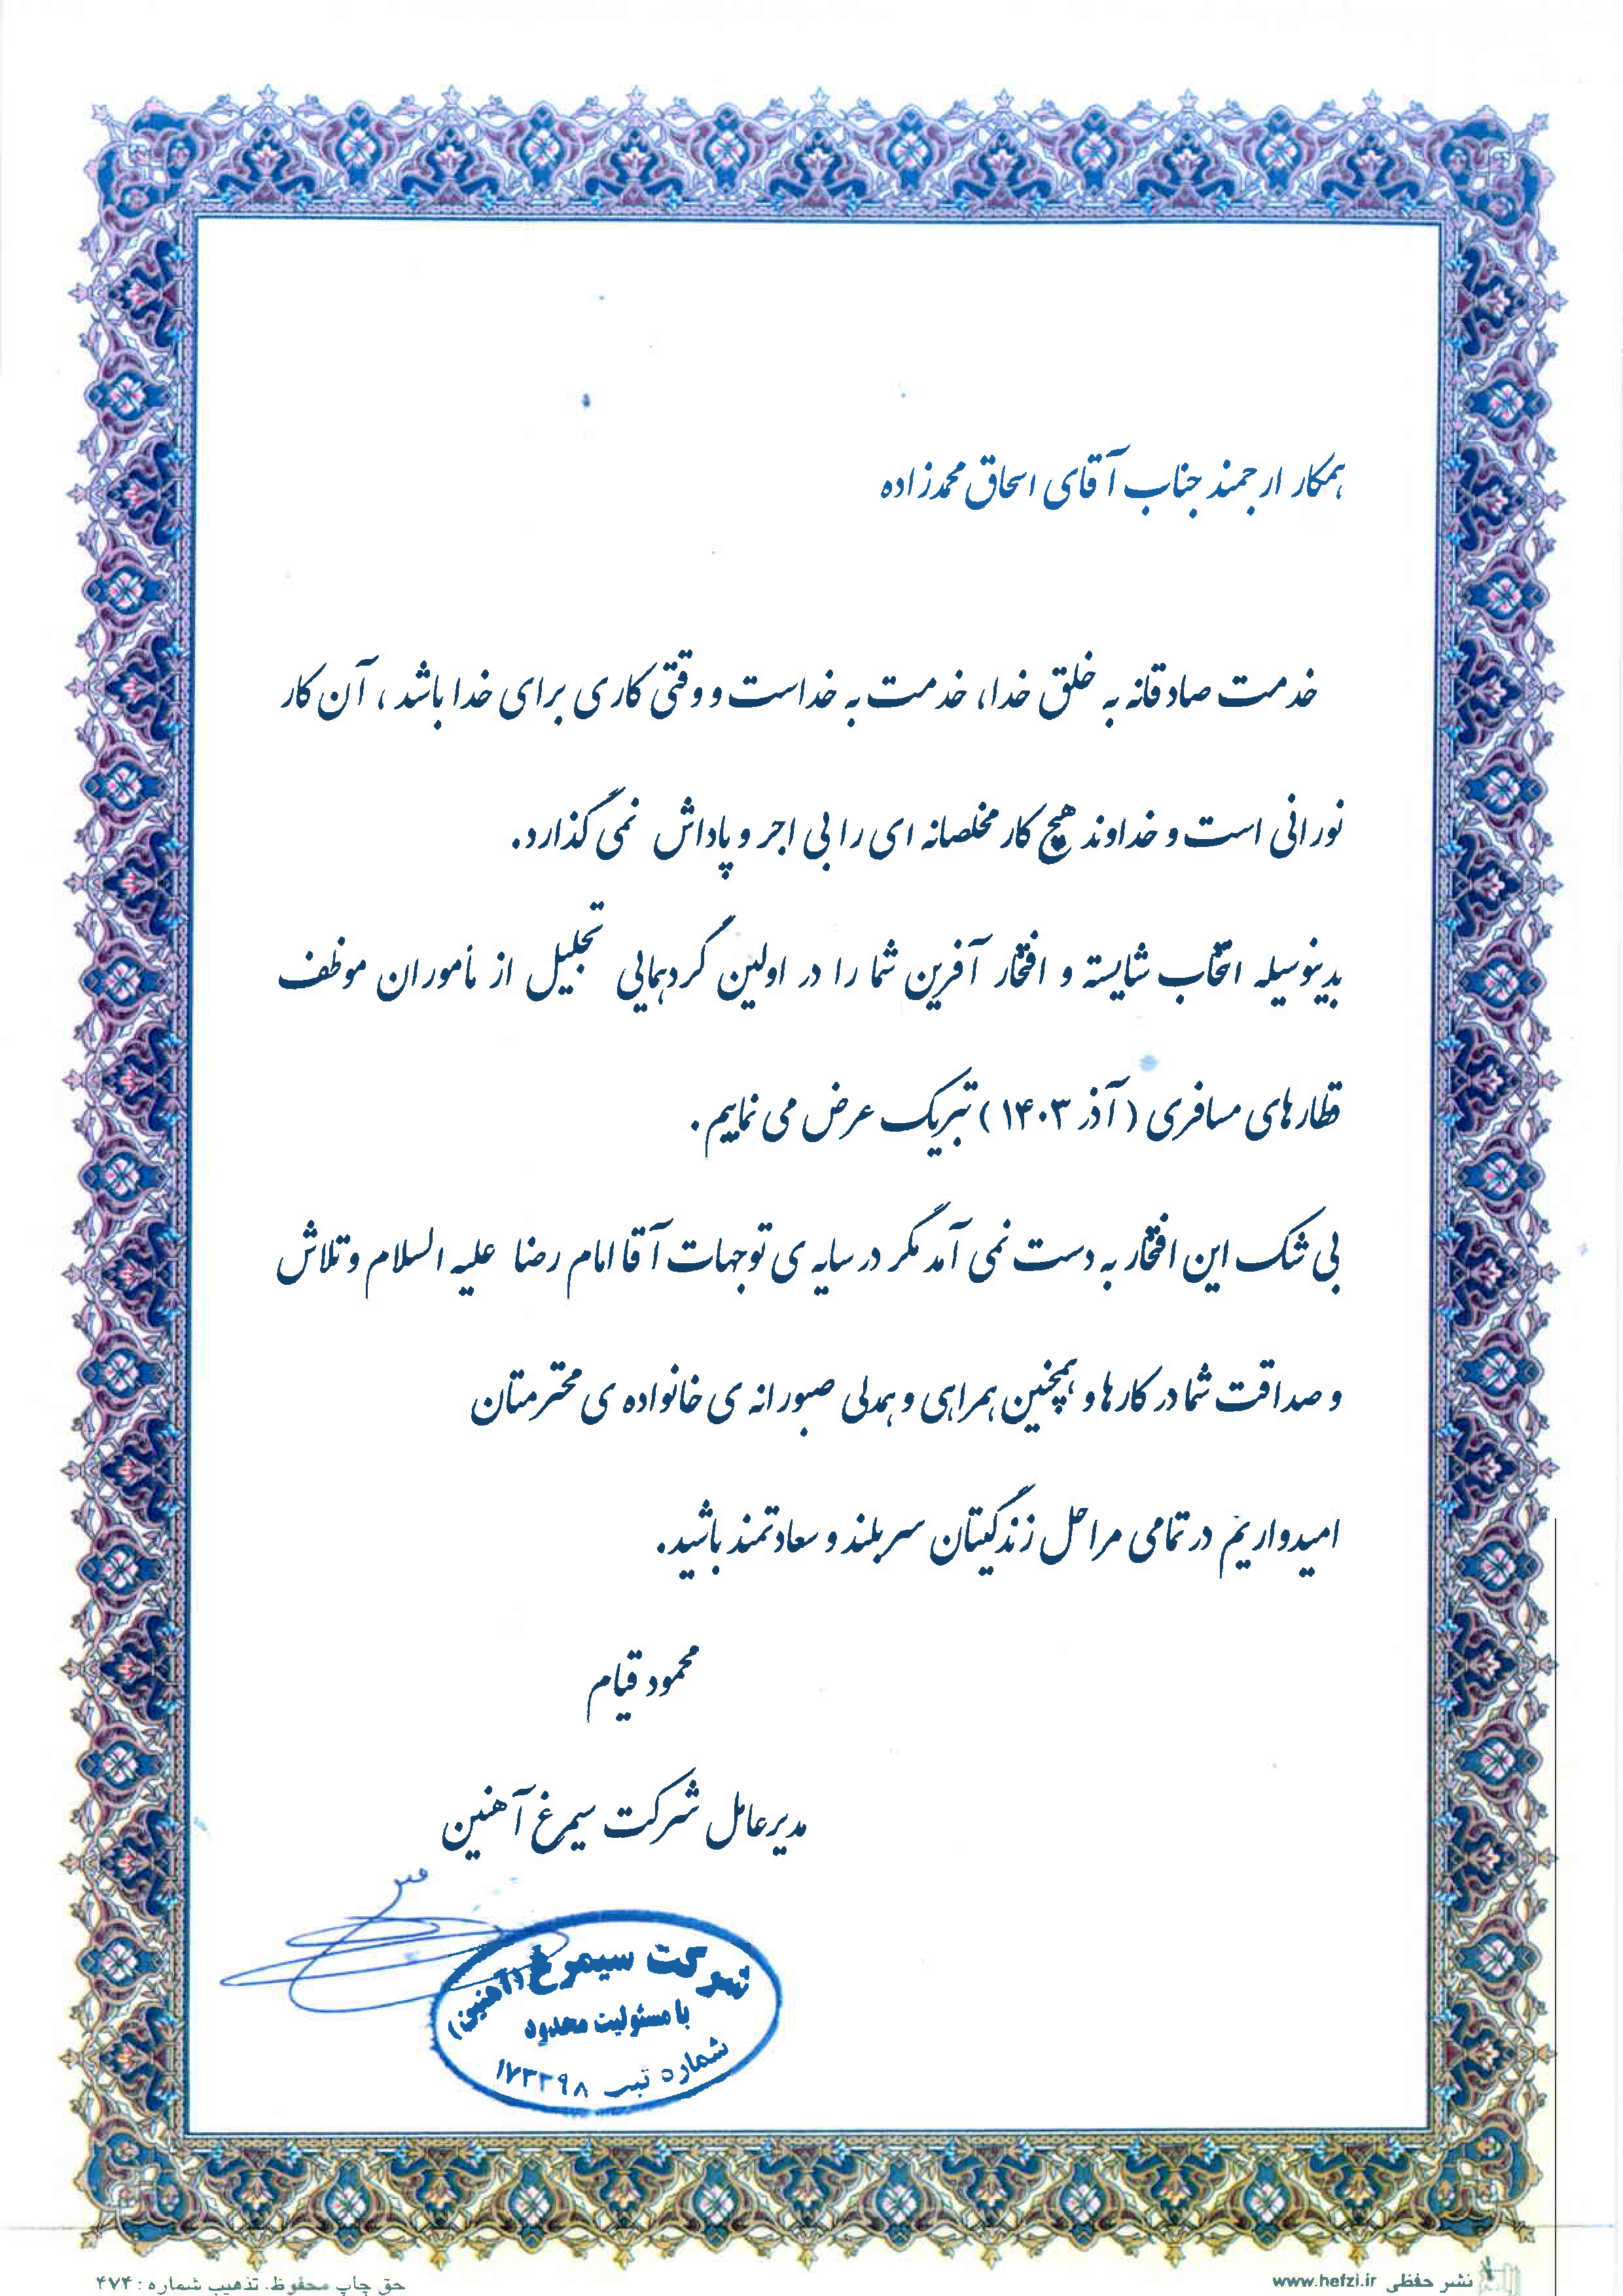 همکار ارجمند جناب آقای اسحاق محمدزاده
خدمت صادقانه به خلق خدا، خدمت به خداست و وقتی کاری برای خدا باشد، آن کار
نورانی است و خداوند هیچ کار مخلصانه ای را بی اجر و پاداش نمی گذارد.
بدینوسیله انتخاب شایسته و افتخار آفرین شما را در اولین گردهمایی تجلیل از مأموران موظف
قطارهای مسافری (آذر ۱۴۰۳) تبریک عرض می نماییم.
بی شک این افتخار به دست نمی آمد مگر در سایه ی توجهات آقا امام رضا علیه السلام و تلاش
و صداقت شما در کارها و همچنین همراهی و همدلی صبورانه ی خانواده ی محترمتان
امیدواریم در تمامی مراحل زندگیتان سربلند و سعادتمند باشید.
محمود قیام
مدیرعامل شرکت سیمرغ آهنین
شرکت سیمرغ (آهنین)
با مسئولیت محدود
شماره ثبت ۱۷۳۳۹۸
نشر حفظی www.hefzi.ir
حق چاپ محفوظ. تذهیب شماره: ۴۷۴